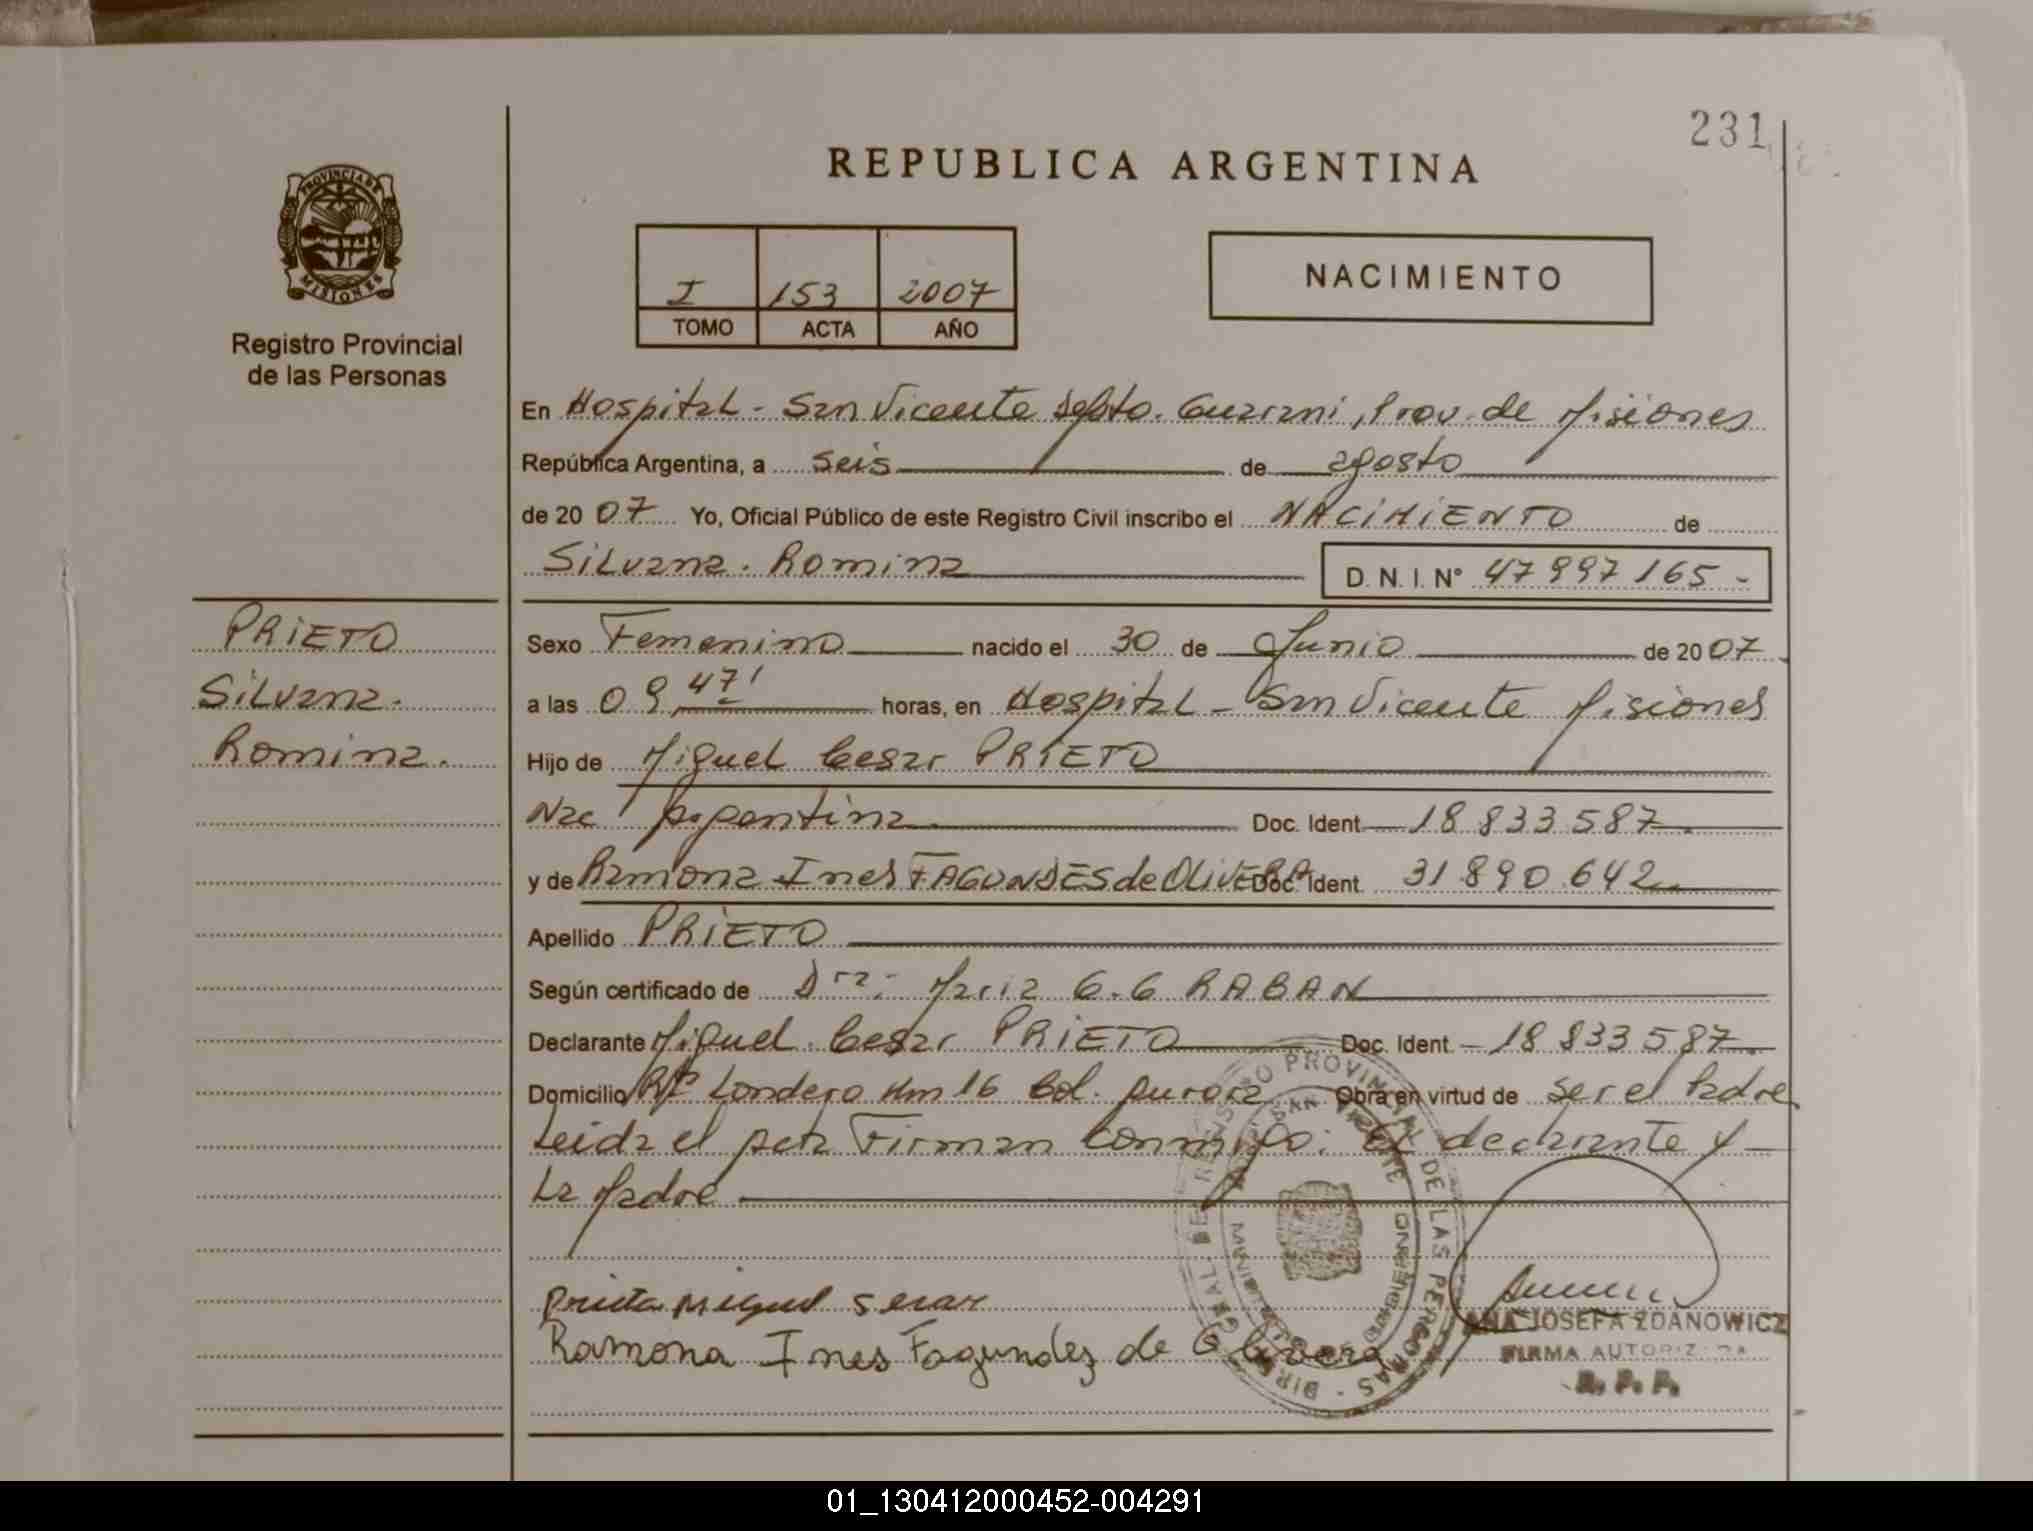 231
PROVINCIA DE
MISIONES
Registro Provincial
de las Personas
REPUBLICA ARGENTINA
I 153 2007
TOMO ACTA AÑO
NACIMIENTO
En Hospital - San Vicente Dpto. Guarani, Prov. de Misiones
República Argentina, a seis de agosto
de 20 07 Yo, Oficial Público de este Registro Civil inscribo el NACIMIENTO de
Silvana. Romina D. N. I. N° 47997165-
PRIETO
Silvana.
Romina.
Sexo Femenino nacido el 30 de Junio de 20 07
a las 09,47' horas, en Hospital - San Vicente Misiones
Hijo de Miguel Cesar PRIETO
Nac Argentina Doc. Ident. 18.833.587.
y de Ramona Ines FAGUNDES de OLIVERA Doc. Ident. 31.890.642
Apellido PRIETO
Según certificado de Dra: Maria G.G RABAN
Declarante Miguel Cesar PRIETO Doc. Ident. 18 833 587.
Domicilio Londero Km 16 Col. Aurora Obra en virtud de ser el Padre
Leida el Acta Firman conmigo: El declarante y
La Madre
Prieto Miguel Serar
Ramona Ines Fagundez de Olivera
DIRECCION GENERAL DE REGISTRO PROVINCIAL DE LAS PERSONAS
SAN VICENTE
ANA JOSEFA ZDANOWICZ
FIRMA AUTORIZADA
R. P. P.
01_130412000452-004291